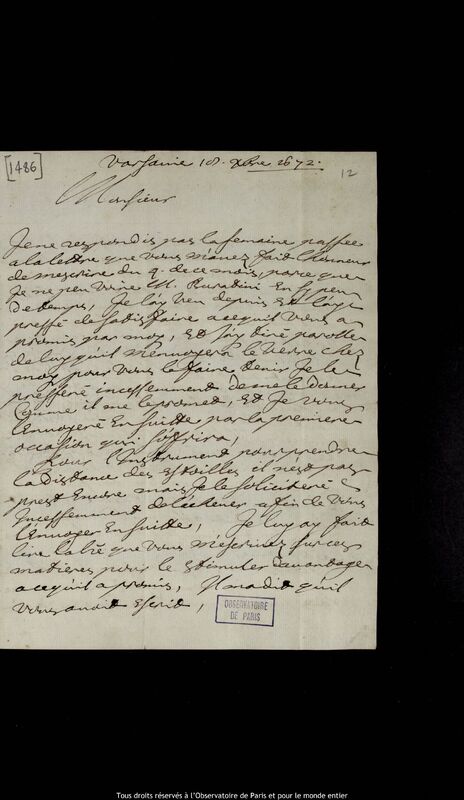 [1486]
Varsavie 18. xbre 1672.
12
Monsieur
Je ne respondis pas la semaine passée
a la lettre que vous m'avez faid l'honneur
de m'escrire du 9. de ce mois, parce que
Je ne peu veoir M. Buratini En sy peu
de temps, Je l'ay veu depuis Et l'ay
pressé de satisfaire a ce qu'il vous a
promis par moy, Et J'ay tiré parolle
de luy qu'il m'envoyera le verre chez
moy pour vous le faire tenir Je le
presseré incessemment de me le donner
comme il me l'a promis, Et Je vous
l'envoyeré En suitte par la premiere
occasion qui s'offrira,
Pour l'Instrument pour prendre
la Distance des Estoilles il n'est pas
prest Encore mais Je le soliciteré
Incessemment de l'achever afin de vous
l'envoyer En suitte, Je luy ay faid
lire la lre que vous m'escrivez sur ces
matieres pour le stimuler davantage
a ce qu'il a promis, Il m'a dit qu'il
vous avoit Escrit,
OBSERVATOIRE
DE PARIS
Tous droits réservés à l'Observatoire de Paris et pour le monde entier